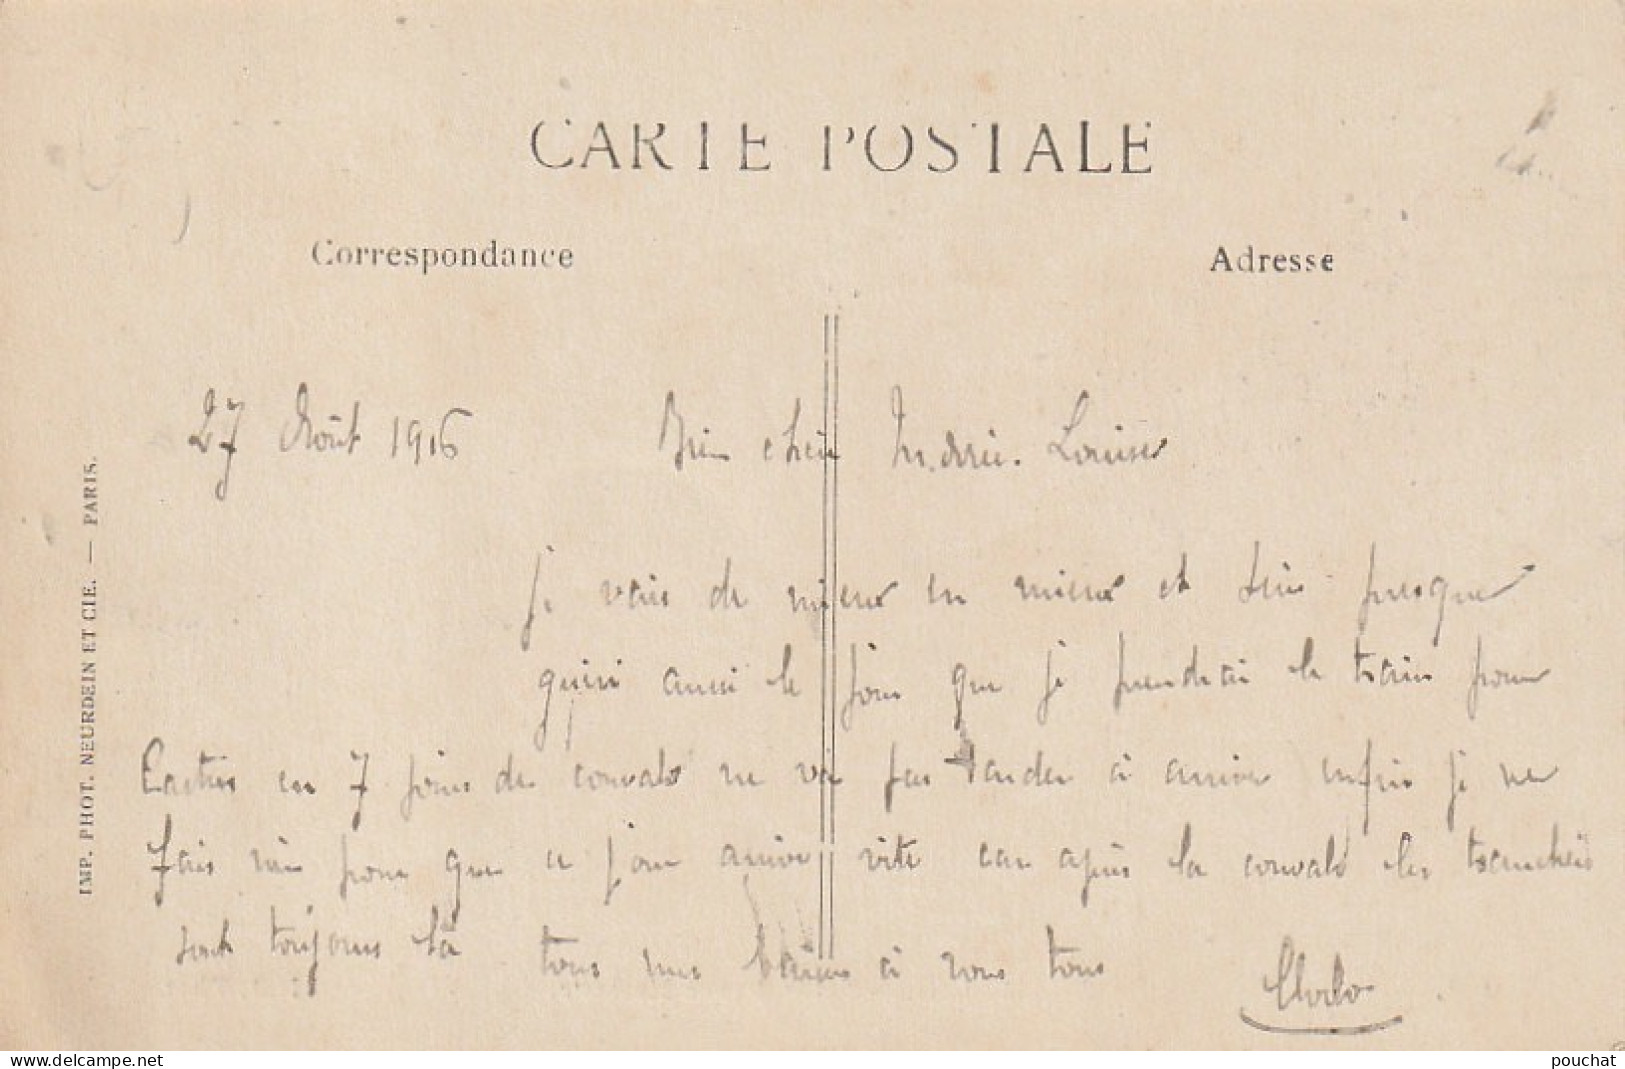 CARTE POSTALE
Correspondance
Adresse
27 Août 1916 Bien cher Marie. Louise
je vais de mieux en mieux et suis presque
guéri aussi le jour que je prendrai le train pour
Castres en 7 jours de convalo ne va pas tarder à arriver enfin je ne
fais rien pour que ce jour arrive vite car après la convalo les tranchées
sont toujours là tous mes baisers à vous tous
Clodo
IMP. PHOT. NEURDEIN ET CIE. — PARIS.
delcampe.net
pouchat